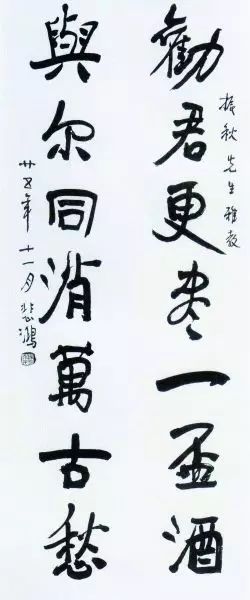 勸君更尽一盃酒
振秋先生雅教
與尔同消萬古愁
廿五年十一月悲鴻